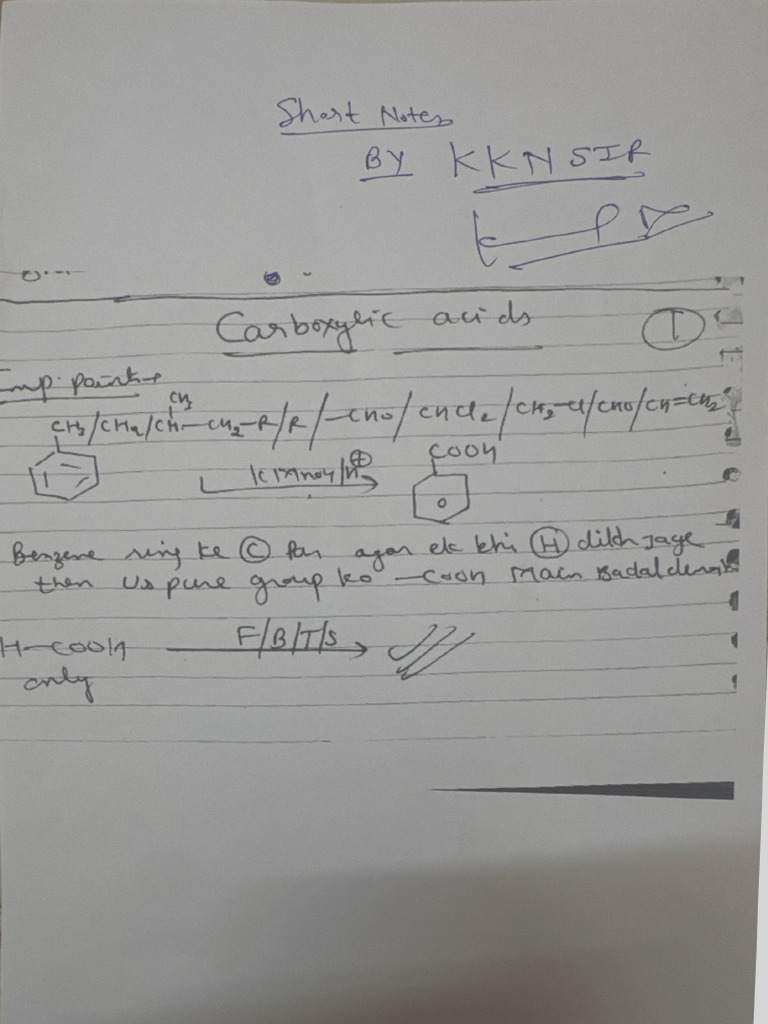 Short Notes
BY KKN SIR
Carboxylic acids
I
Imp. points
CH3
CH3/CH2/CH-CH2-R/R/-CHO/CHCl2/CH2-Cl/CHO/CH=CH2
KMnO4/H⊕
COOH
Benzene ring ke C Par agar ek bhi H dikh Jaye
then Us pure group ko -COOH Main Badal dena
H-COOH F/B/T/S
only